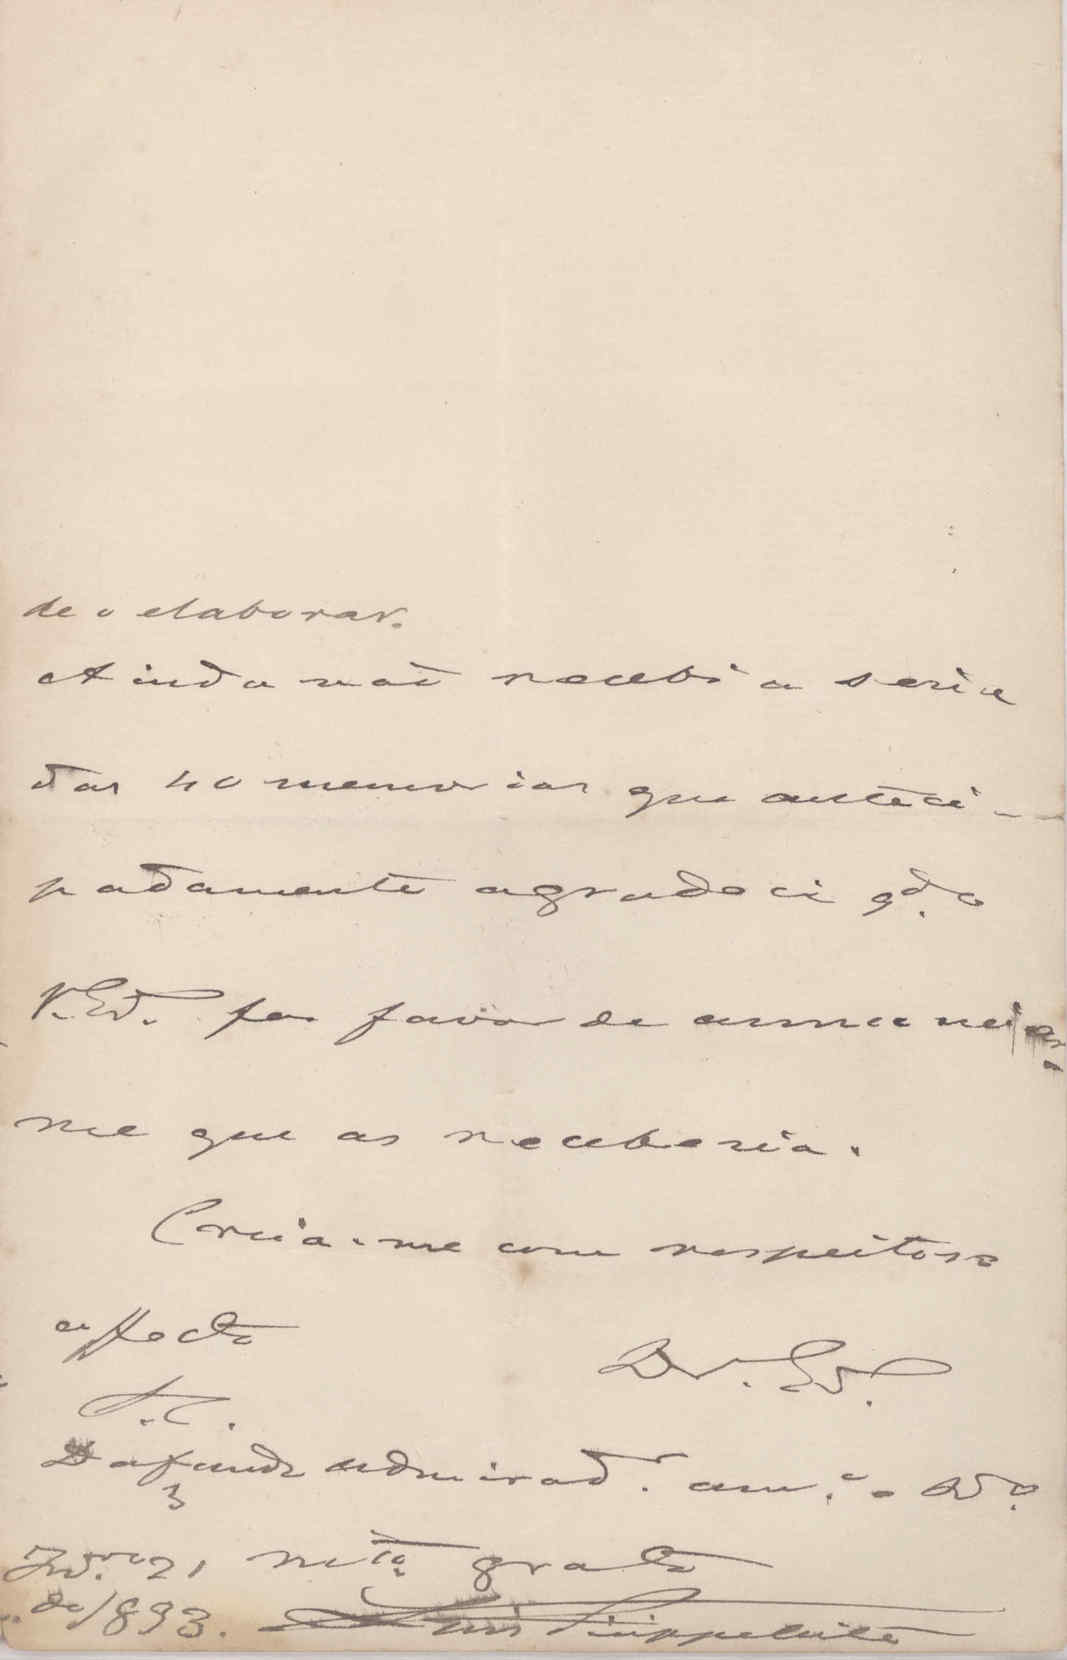 de o elaborar.
Ainda não recebi a serie
das 40 memorias que anteci-
padamente agradeci qdo.
V. Ex. fez favor de annunciar-
me que as receberia.
Creia-me com respeitoso
affecto
De V. Ex.
S. C.
Dafundo admirad.r am.o
3
21 mto grato
de 1893. Luis